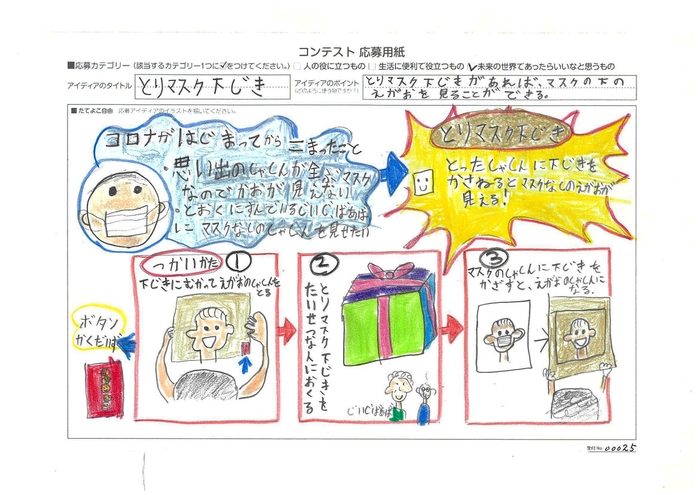 コンテスト 応募用紙
■応募カテゴリー（該当するカテゴリー1つに✓をつけてください。） □ 人の役に立つもの □ 生活に便利で役立つもの ✓未来の世界であったらいいなと思うもの
アイディアのタイトル とりマスク下じき
アイディアのポイント とりマスク下じきがあれば、マスクの下の
えがおを見ることができる。
■たてよこ自由 応募アイディアのイラストを描いてください。
コロナがはじまってからこまったこと
・思い出のしゃしんが全ぶマスク
なのでかおが見えない
・とおくにすんでいるじいじばあば
に マスクなしのしゃしんを見せたい
とりマスク下じき
とったしゃしんに下じきを
かさねるとマスクなしのえがおが
見える!
つかいかた ①
下じきにむかってえがおのしゃしんを
とる
ボタン
かくだいず
②
とりマスク下じきを
たいせつな人におくる
じいじばあば
③
マスクのしゃしんに下じきを
かざすと、えがおのしゃしんに
なる.
受付No. 00025